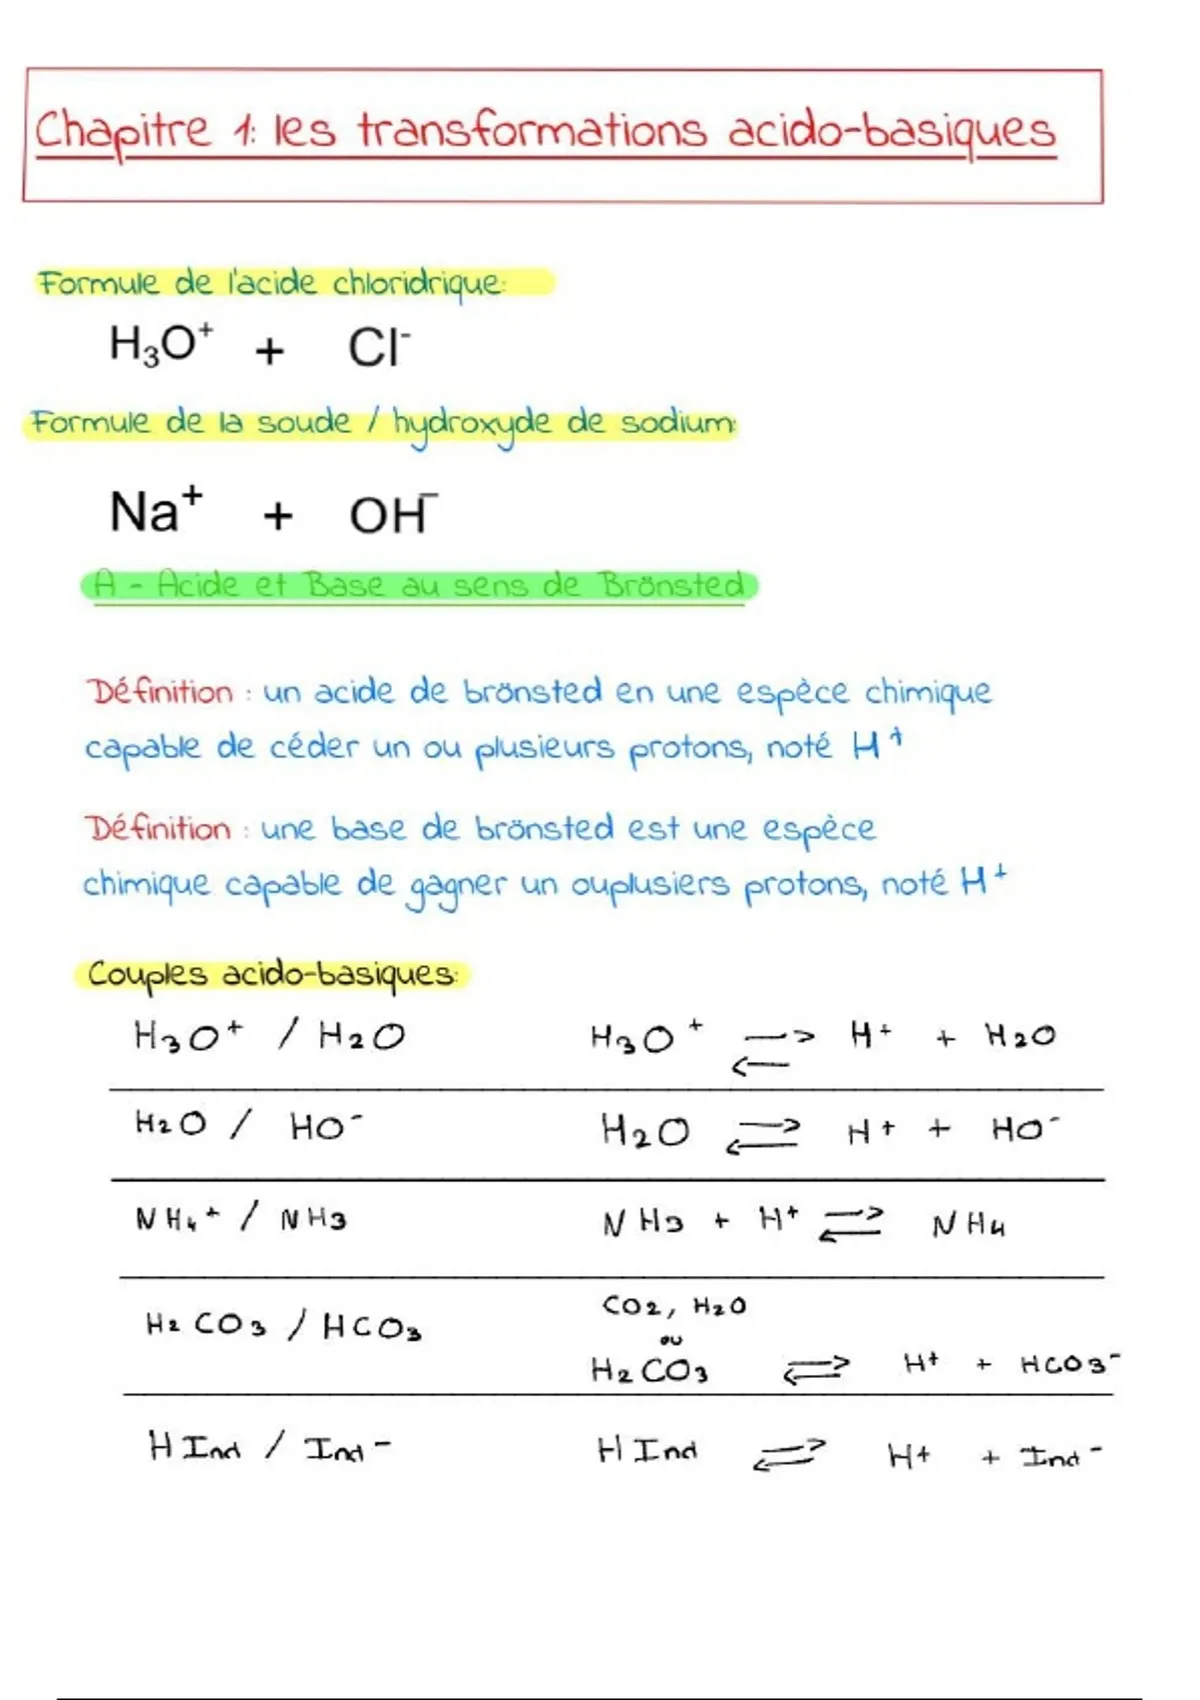 Chapitre 1: les transformations acido-basiques
Formule de l'acide chloridrique:
H₃O⁺ + Cl⁻
Formule de la soude / hydroxyde de sodium:
Na⁺ + OH⁻
A - Acide et Base au sens de Brönsted
Définition : un acide de brönsted en une espèce chimique
capable de céder un ou plusieurs protons, noté H⁺
Définition : une base de brönsted est une espèce
chimique capable de gagner un ouplusiers protons, noté H⁺
Couples acido-basiques:
H₃O⁺ / H₂O H₃O⁺ ⇌ H⁺ + H₂O
H₂O / HO⁻ H₂O ⇌ H⁺ + HO⁻
NH₄⁺ / NH₃ NH₃ + H⁺ ⇌ NH₄
CO₂, H₂O
ou
H₂CO₃ / HCO₃ H₂CO₃ ⇌ H⁺ + HCO₃⁻
HInd / Ind⁻ HInd ⇌ H⁺ + Ind⁻